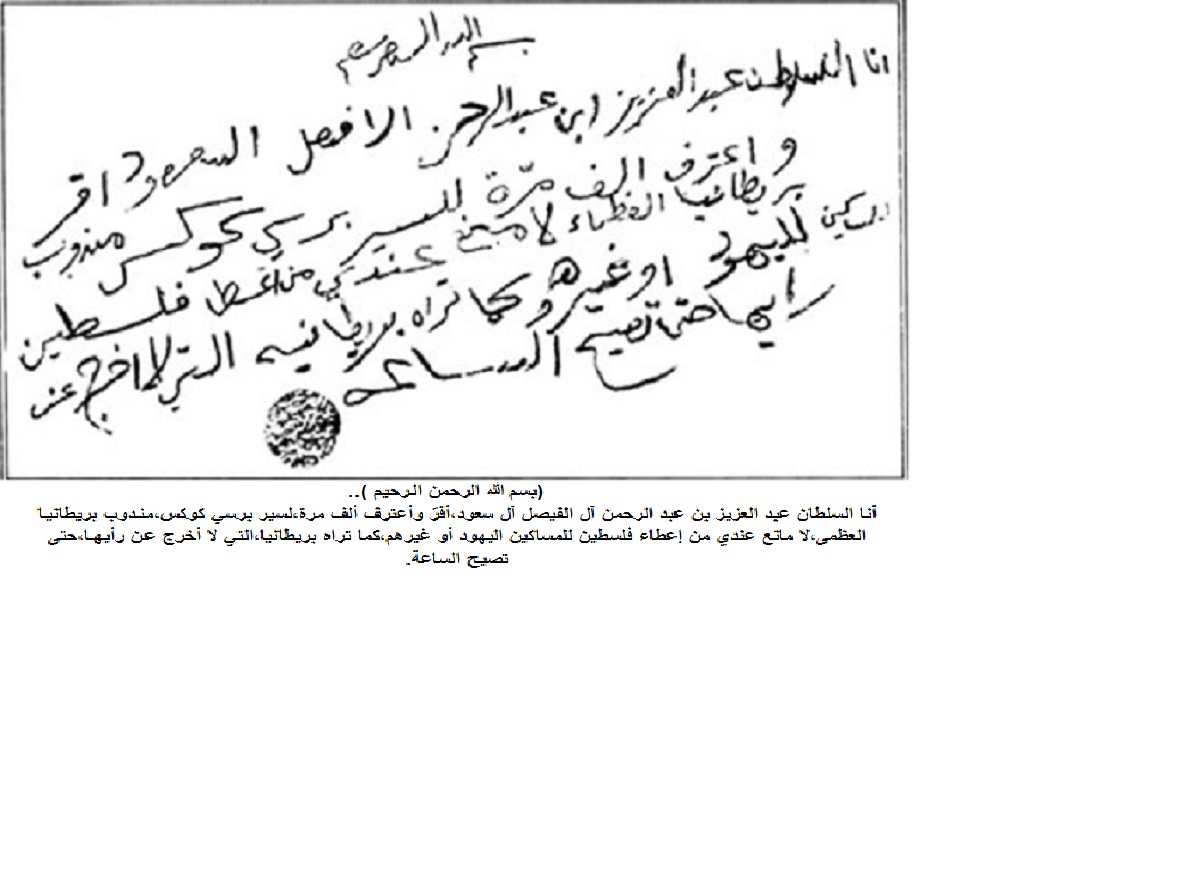 بسم الله الرحمن الرحيم
انا السلطان عبد العزيز ابن عبد الرحمن الافصل السعود اقر
و اعترف الف مرّة للسير برسي كوكس مندوب
بريطانيا العظماء لا منع عندي من اعطى فلسطين
للمساكين لليهود او غيرهم وكما تراه بريطانيه التي لا اخرج عن
رايها حتى تصيح الساعه
(بسم الله الرحمن الرحيم )..
أنا السلطان عبد العزيز بن عبد الرحمن آل الفيصل آل سعود،أقرّ وأعترف ألف مرة،لسير برسي كوكس،مندوب بريطانيا
العظمى،لا مانع عندي من إعطاء فلسطين للمساكين اليهود أو غيرهم،كما تراه بريطانيا،التي لا أخرج عن رأيها،حتى
تصيح الساعة.